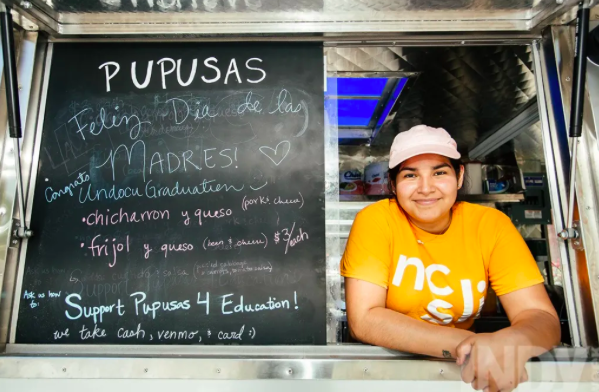 PUPUSAS
Feliz Dia de las
MADRES! ♡
Congrats
UndocuGraduation
• chicharron y queso (pork & cheese)
• frijol y queso (bean & cheese) $3/each
Ask us how to:
Support Pupusas 4 Education!
we take cash, venmo, & card :)
nc
sli
INDY